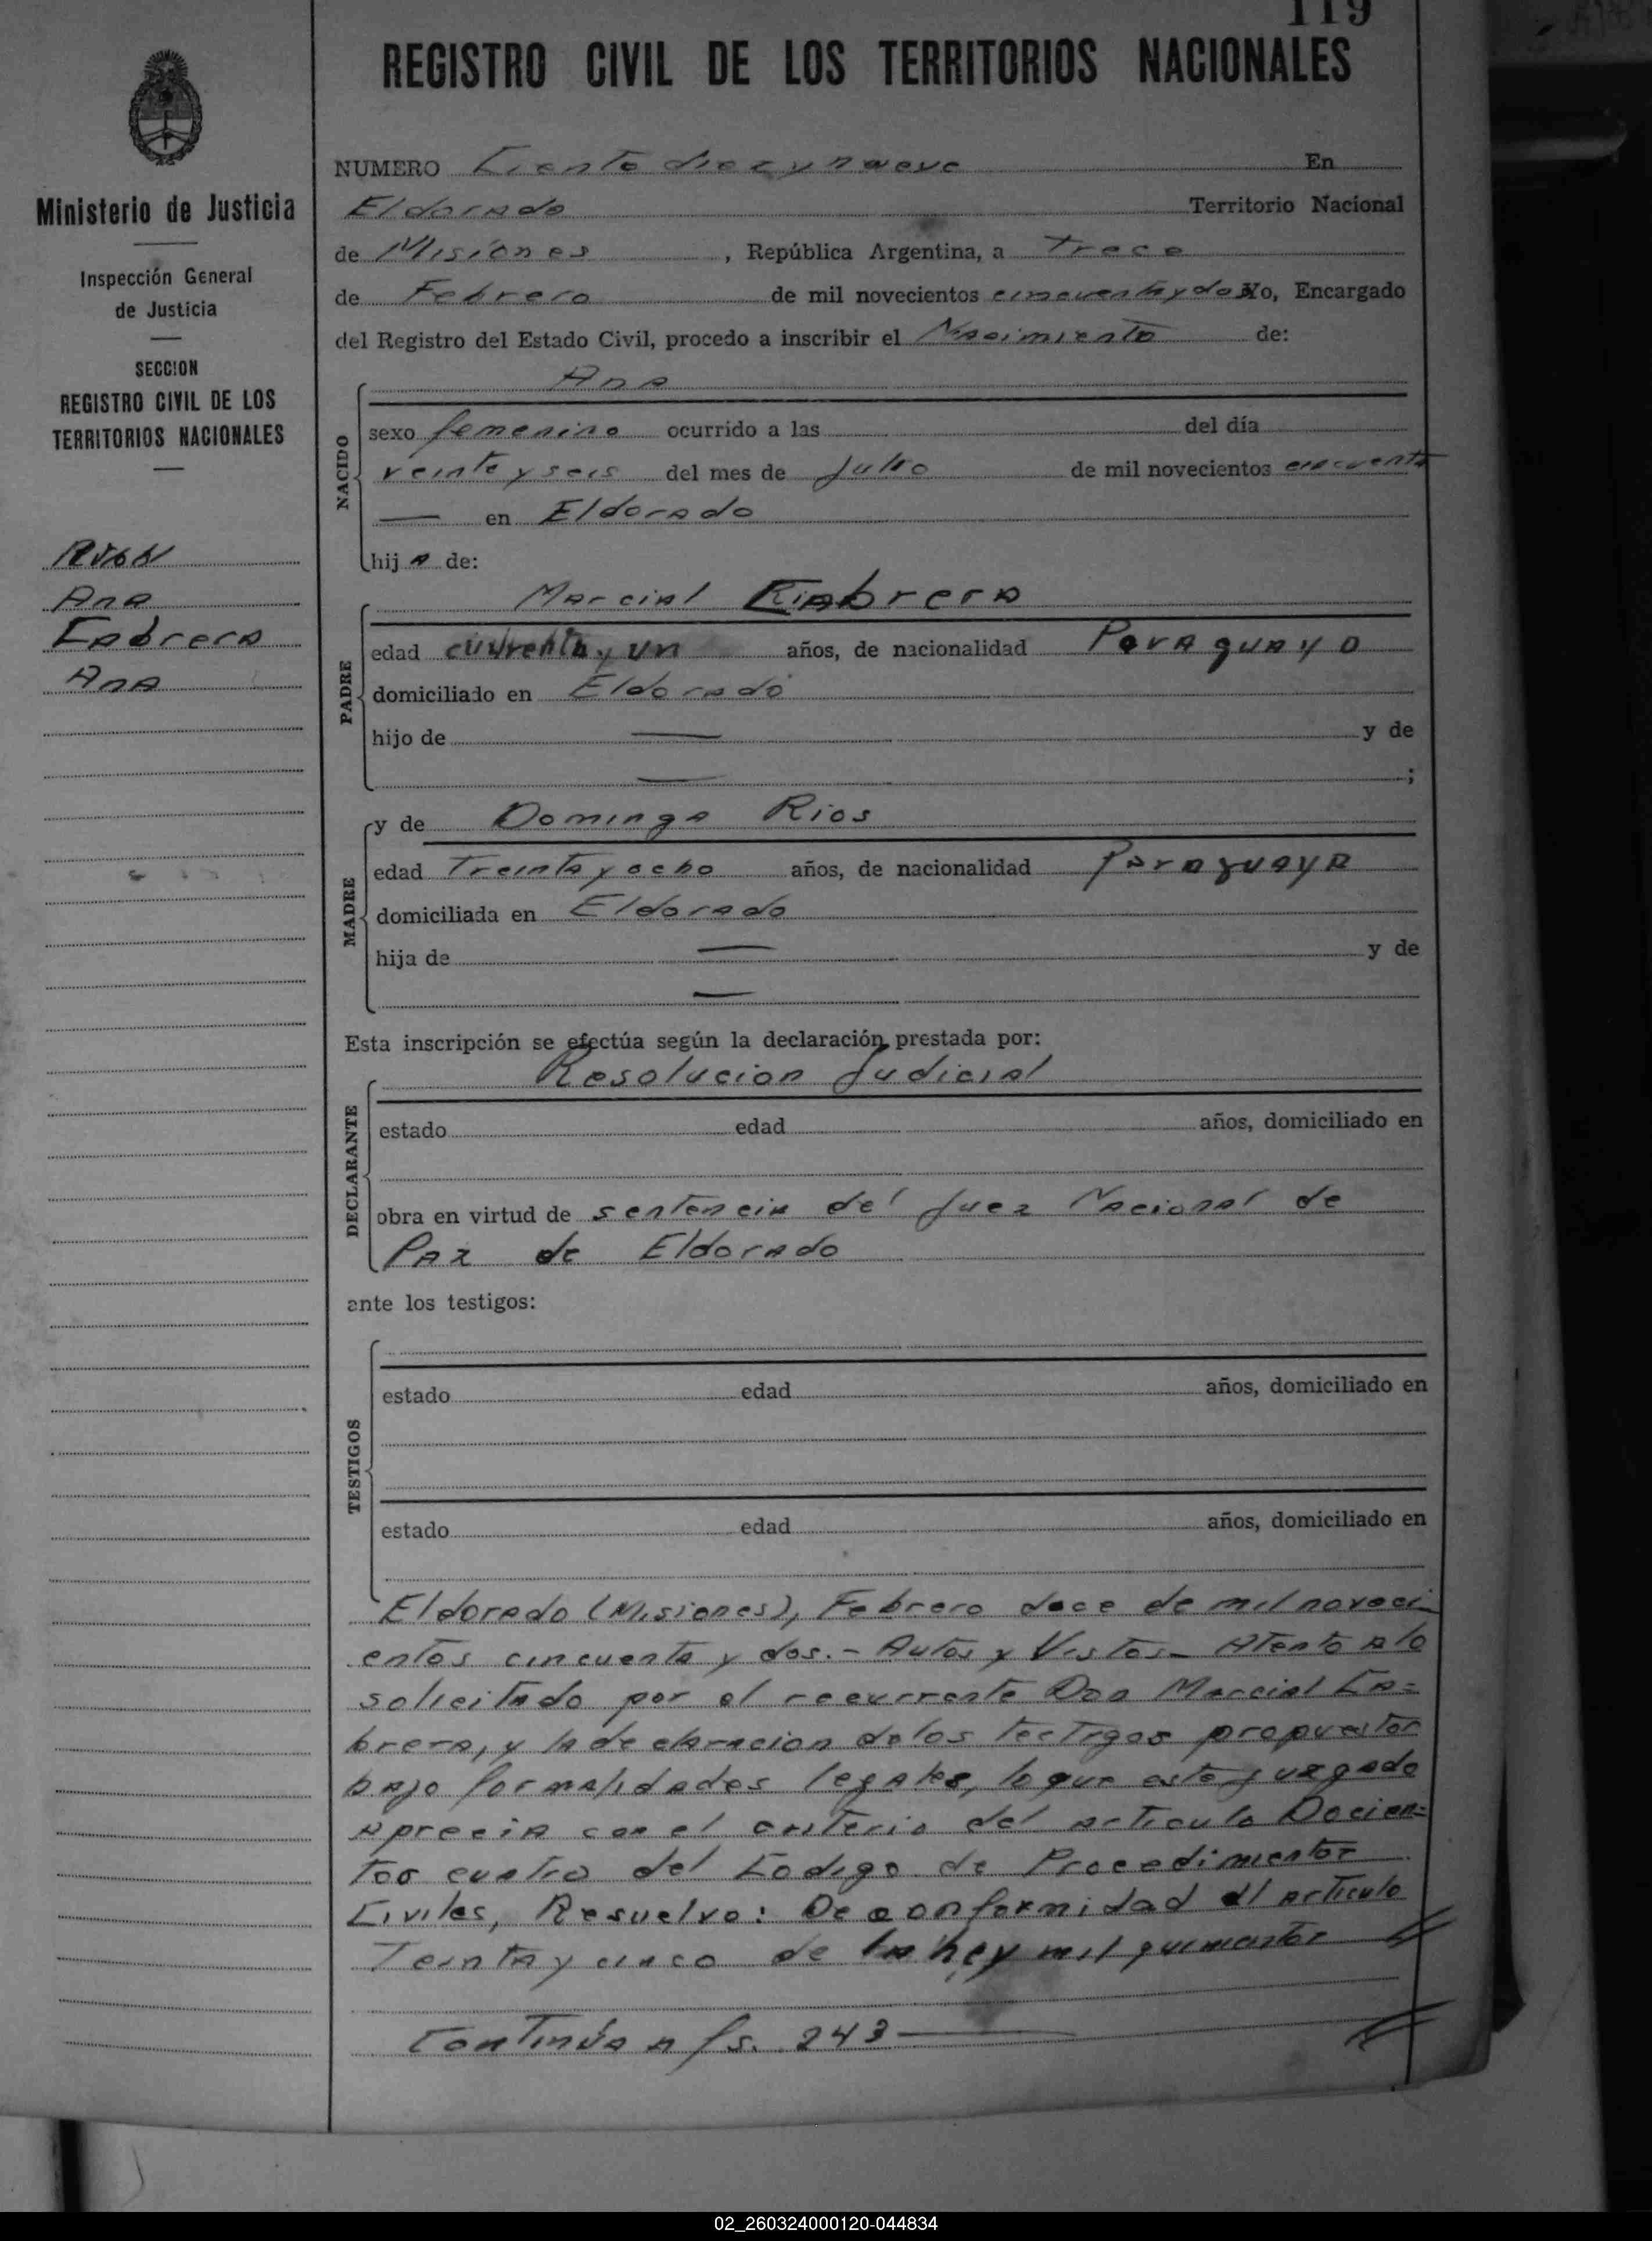 119
REGISTRO CIVIL DE LOS TERRITORIOS NACIONALES
Ministerio de Justicia
Inspección General
de Justicia
SECCION
REGISTRO CIVIL DE LOS
TERRITORIOS NACIONALES
Ana
Cabrera
Ana
NUMERO Ciento diez y nueve En
Eldorado Territorio Nacional
de Misiones, República Argentina, a Trece
de Febrero de mil novecientos cincuenta y dos Yo, Encargado
del Registro del Estado Civil, procedo a inscribir el Nacimiento de:
NACIDO
Ana
sexo femenino ocurrido a las del día
veinte y seis del mes de Julio de mil novecientos cincuenta
— en Eldorado
hija de:
PADRE
Marcial Cabrera
edad cuarenta y un años, de nacionalidad Paraguayo
domiciliado en Eldorado
hijo de — y de
— ;
MADRE
y de Dominga Rios
edad Treinta y ocho años, de nacionalidad Paraguaya
domiciliada en Eldorado
hija de — y de
—
Esta inscripción se efectúa según la declaración prestada por:
DECLARANTE
Resolucion Judicial
estado edad años, domiciliado en
obra en virtud de sentencia del Juez Nacional de
Paz de Eldorado
ante los testigos:
TESTIGOS
estado edad años, domiciliado en
estado edad años, domiciliado en
Eldorado (Misiones), Febrero doce de mil noveci
entos cincuenta y dos.- Autos y Vistos- Atento a lo
solicitado por el recurrente Don Marcial Ca=
brera, y la declaracion de los testigos propuestos
bajo formalidades legales, lo que este juzgado
aprecia con el criterio del articulo Docien=
tos cuatro del Codigo de Procedimientos
Civiles, Resuelvo: De conformidad al articulo
Teinta y cinco de la ley mil quinientos
Continúa a fs. 243
02_260324000120-044834